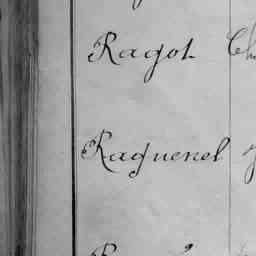 Ragot Ch
Raguenel